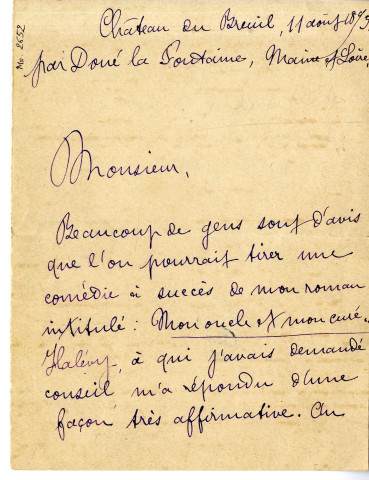 Mo 2652
Château du Breuil, 11 août
par Doué la Fontaine, Maine et Loire
Monsieur,
Beaucoup de gens sont d'avis
que l'on pourrait tirer une
comédie à succès de mon roman
intitulé : Mon oncle et mon curé.
Halévy, à qui j'avais demandé
conseil m'a répondu d'une
façon très affirmative. On